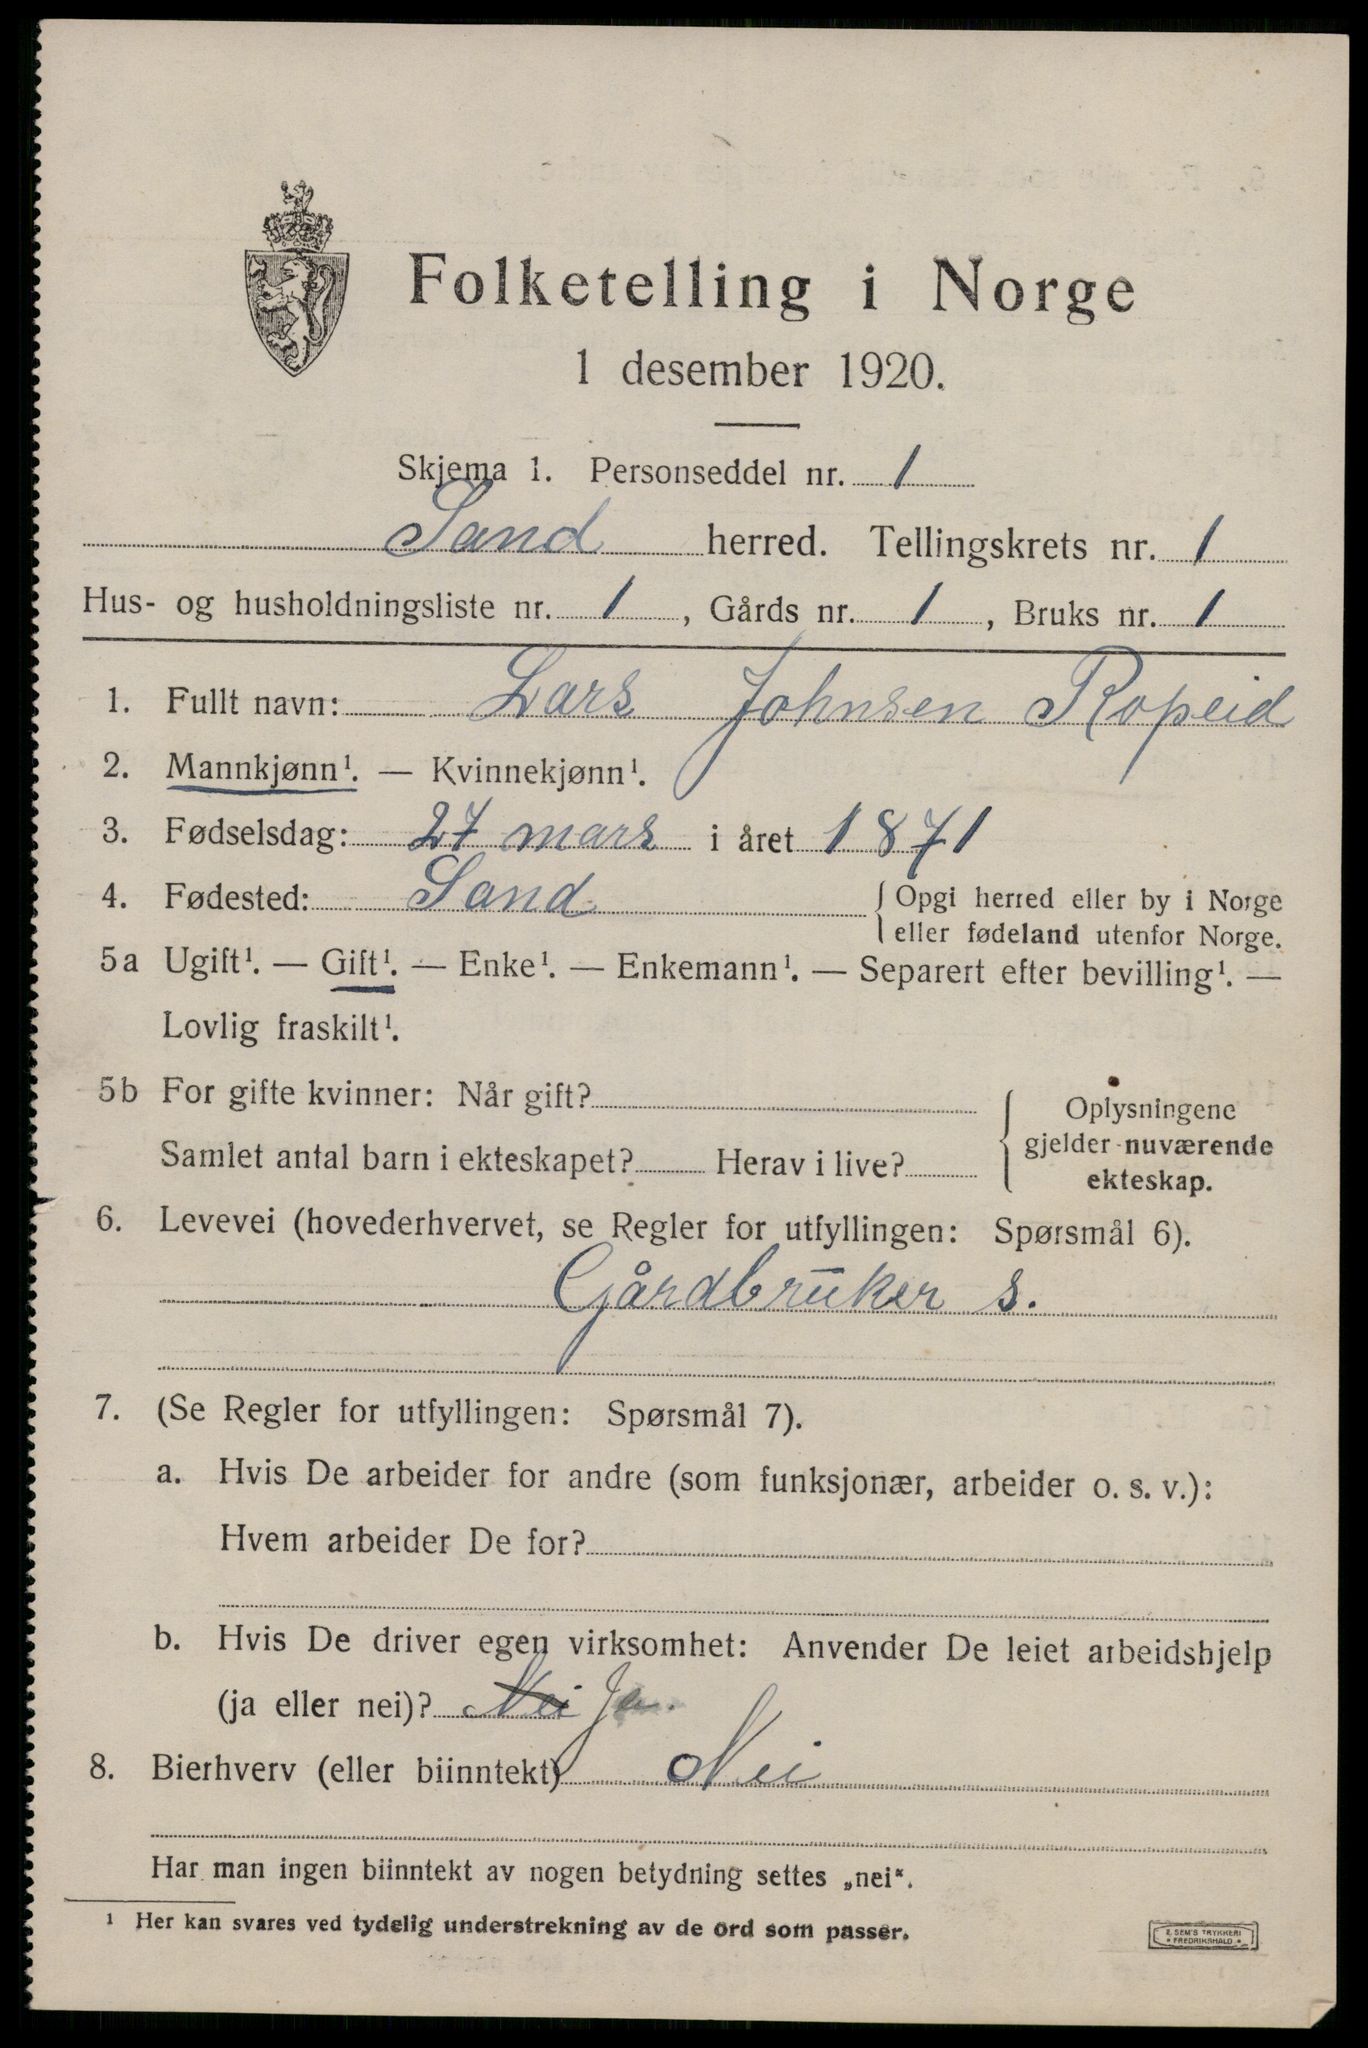 Folketelling i Norge
1 desember 1920.
Skjema 1. Personseddel nr. 1
Sand herred. Tellingskrets nr. 1
Hus- og husholdningsliste nr. 1, Gårds nr. 1, Bruks nr. 1
1. Fullt navn: Lars Johnsen Ropeid
2. Mannkjønn¹. — Kvinnekjønn¹.
3. Fødselsdag: 27 mars i året 1871
4. Fødested: Sand { Opgi herred eller by i Norge
eller fødeland utenfor Norge.
5a Ugift¹. — Gift¹. — Enke¹. — Enkemann¹. — Separert efter bevilling¹. —
Lovlig fraskilt¹.
5b For gifte kvinner: Når gift?
Samlet antal barn i ekteskapet? Herav i live?
{ Oplysningene
gjelder nuværende
ekteskap.
6. Levevei (hovederhvervet, se Regler for utfyllingen: Spørsmål 6).
Gårdbruker s.
7. (Se Regler for utfyllingen: Spørsmål 7).
a. Hvis De arbeider for andre (som funksjonær, arbeider o. s. v.):
Hvem arbeider De for?
b. Hvis De driver egen virksomhet: Anvender De leiet arbeidshjelp
(ja eller nei)? Nei Ja.
8. Bierhverv (eller biinntekt) Nei
Har man ingen biinntekt av nogen betydning settes „nei".
¹ Her kan svares ved tydelig understrekning av de ord som passer.
E. SEM'S TRYKKERI
* FREDRIKSHALD *